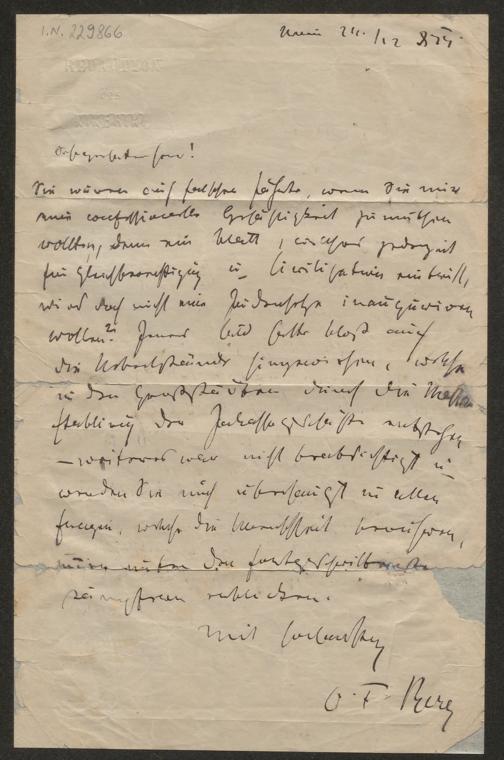 I.N. 229866
Wien 24./12
REDAKTION
des
KIKERIKI
Hochgeehrter Herr!
Sie wären auf falscher Fährte, wenn Sie mir
eine confessionelle Gehässigkeit zumuthen
wollten, denn ein Blatt, welches jederzeit
für Gleichberechtigung u. Civilisation eintritt,
wird doch nicht eine Judenhetze inauguriren
wollen? Jenes Bild hatte bloß auf
die Uebelstände hingewiesen, welche
in den Hauptstädten durch die
der entstehen
– weiteres war nicht beabsichtigt u.
werden Sie mich überzeugt in allen
Fragen, welche die Menschheit
mich unter den fortgeschrittensten
Kämpfern erblicken.
Mit Hochachtung
O. F. Berg